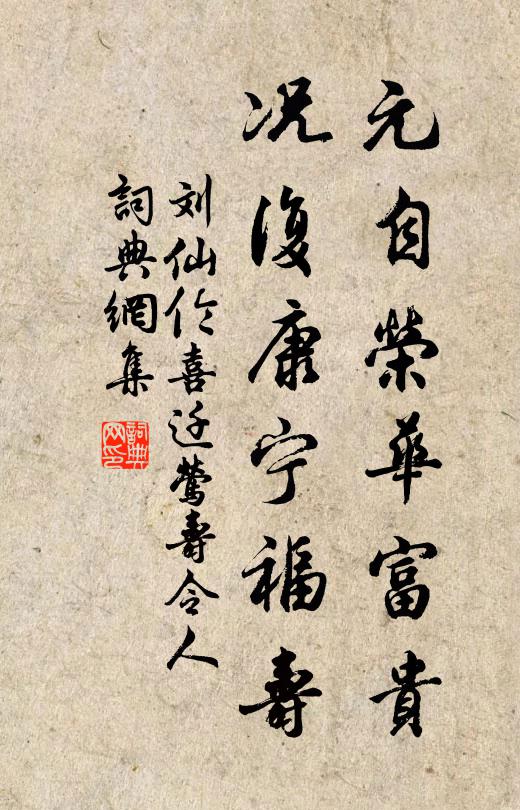 元自榮華富貴
况復康宁福壽
刘仙伦喜迁鶯壽令人
詞典網集
詞典网印